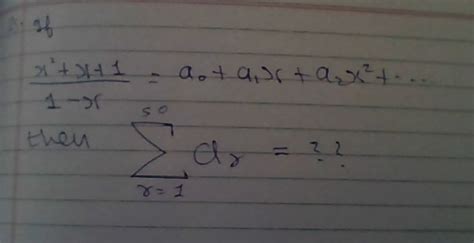 If
x²+x+1 / 1-x = a₀ + a₁x + a₂x² + ...
then ∑_{r=1}^{50} aᵣ = ??